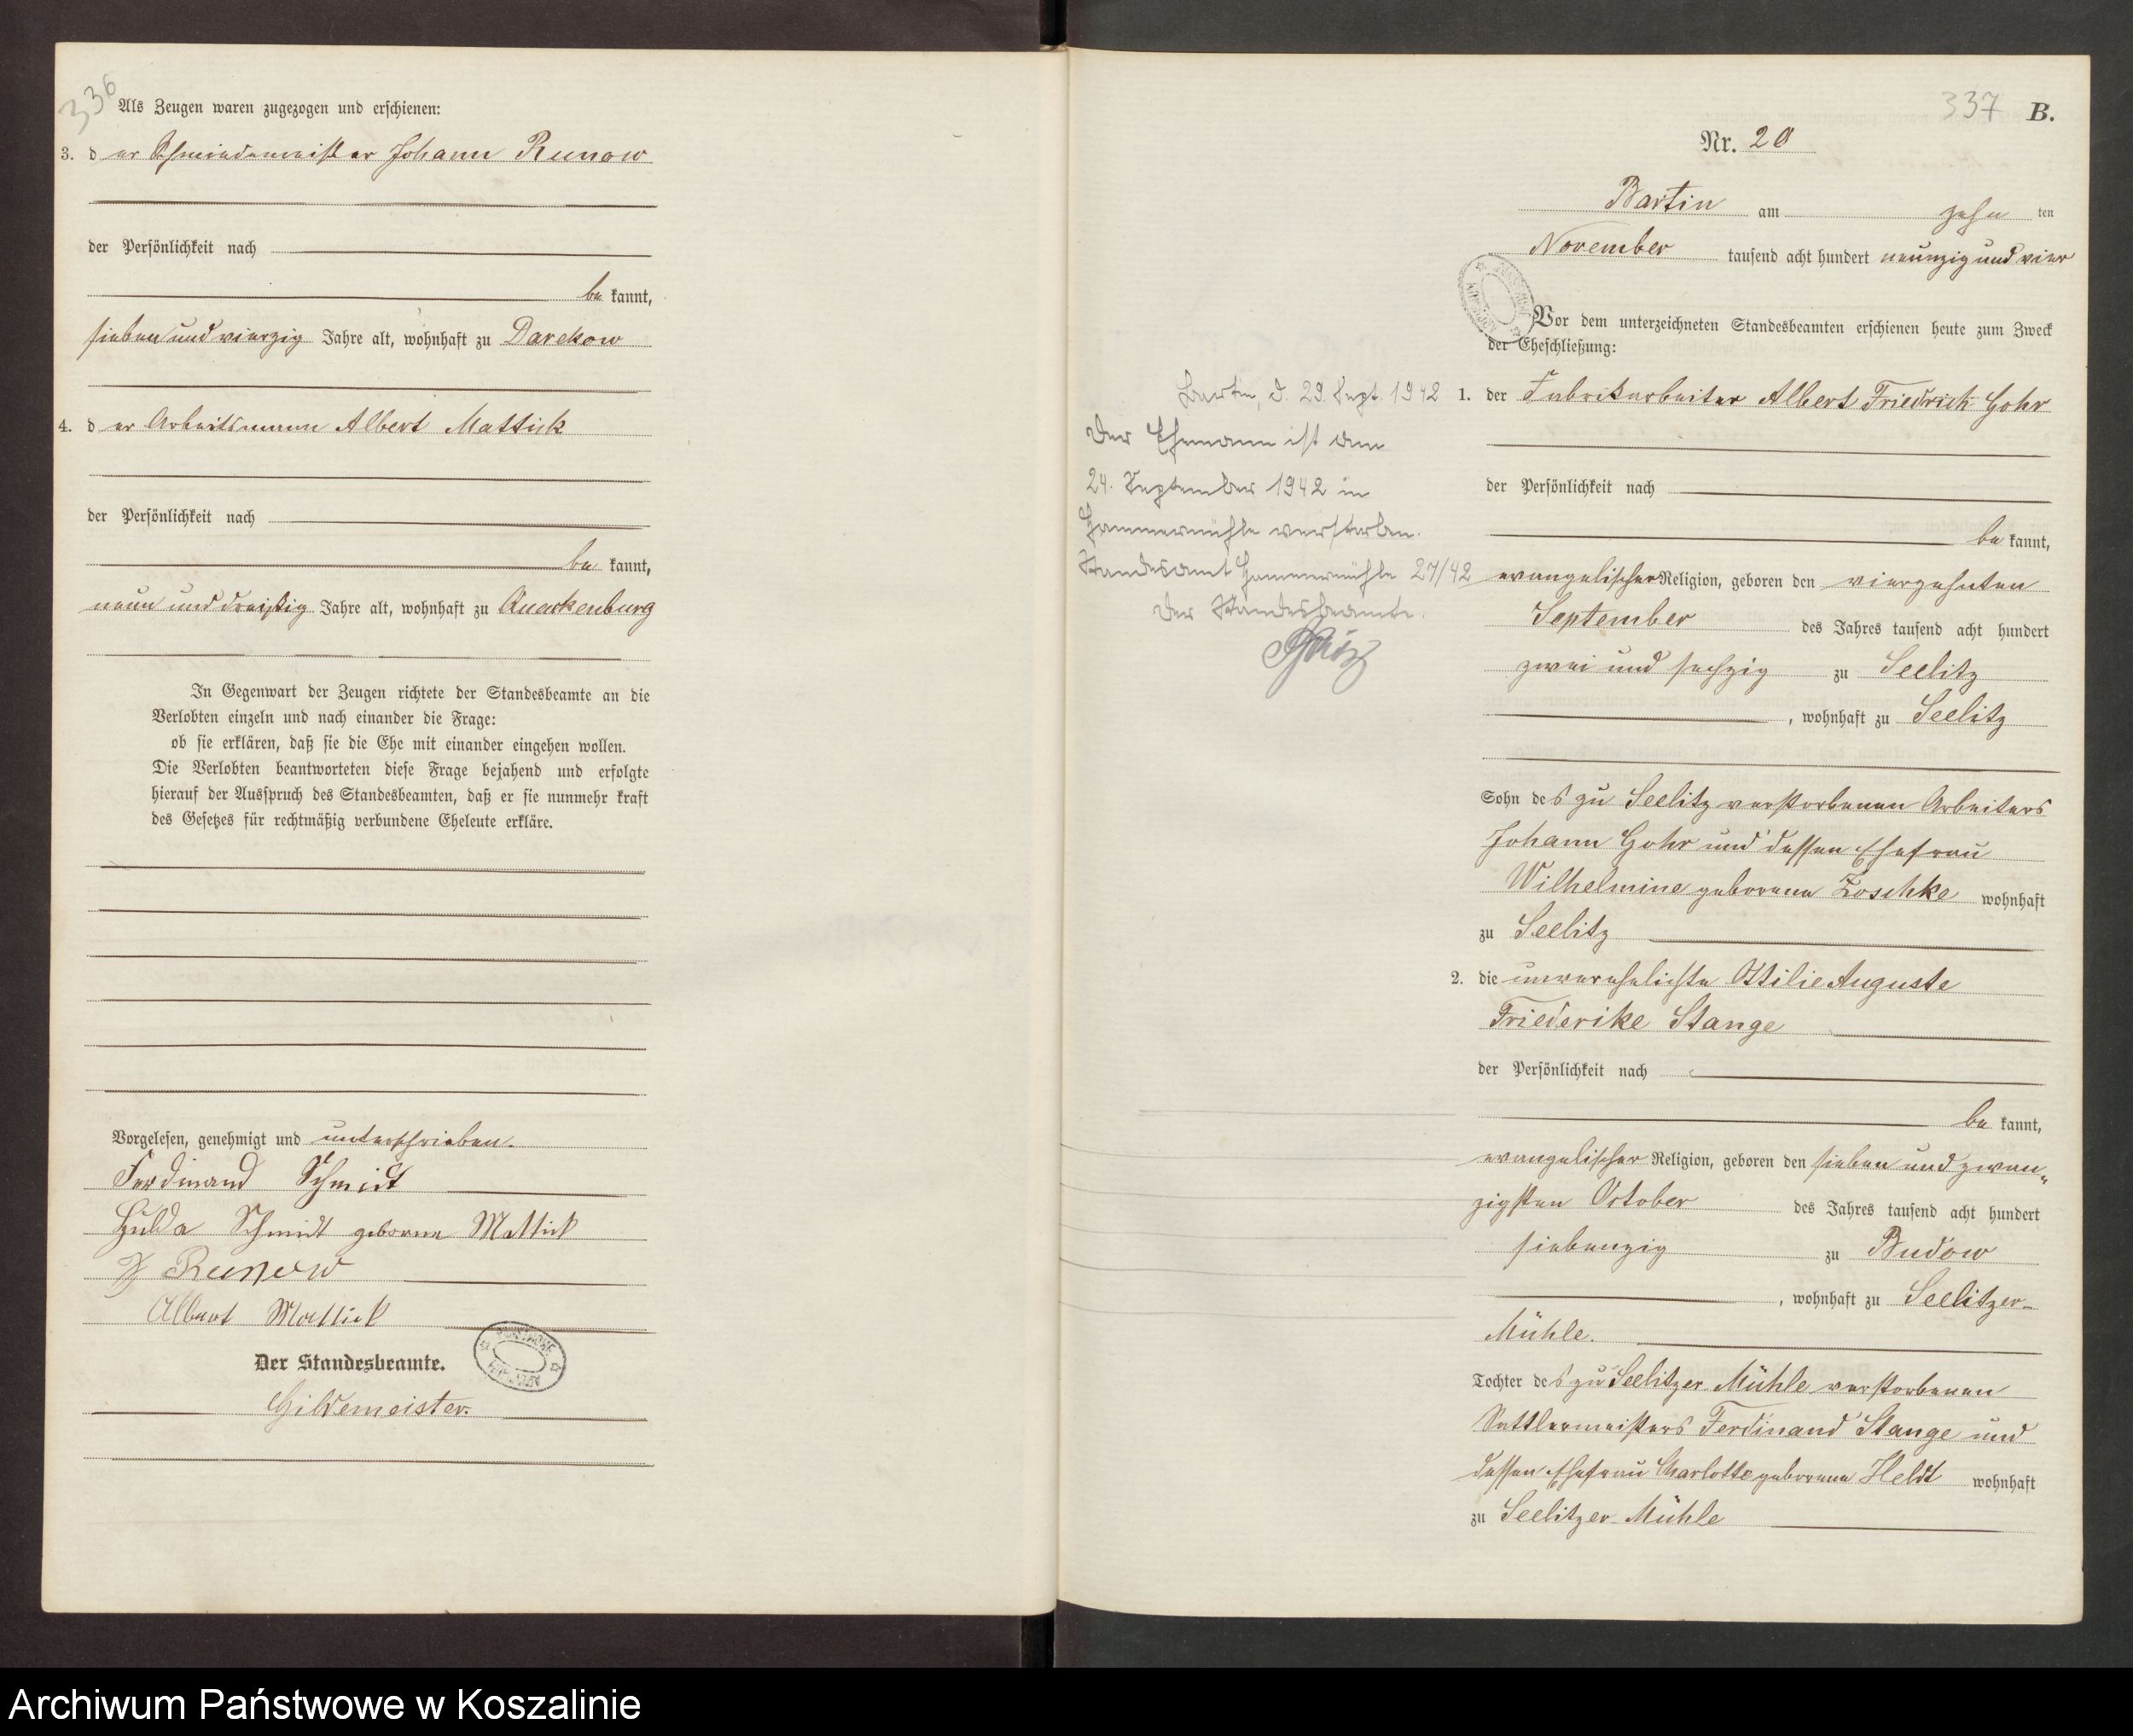 336
Als Zeugen waren zugezogen und erschienen:
3. der Schmiedemeister Johann Runow
der Persönlichkeit nach
be kannt,
sieben und vierzig Jahre alt, wohnhaft zu Darckow
4. der Arbeitsmann Albert Mattick
der Persönlichkeit nach
be kannt,
neun und dreißig Jahre alt, wohnhaft zu Quackenburg
In Gegenwart der Zeugen richtete der Standesbeamte an die
Verlobten einzeln und nach einander die Frage:
ob sie erklären, daß sie die Ehe mit einander eingehen wollen.
Die Verlobten beantworteten diese Frage bejahend und erfolgte
hierauf der Ausspruch des Standesbeamten, daß er sie nunmehr kraft
des Gesetzes für rechtmäßig verbundene Eheleute erkläre.
Vorgelesen, genehmigt und unterschrieben.
Ferdinand Schmidt
Hulda Schmidt geborne Mattick
J Runow
Albert Mattick
Der Standesbeamte.
Gildemeister.
337 B.
Nr. 20
Bartin am zehn ten
November tausend acht hundert neunzig und vier
Vor dem unterzeichneten Standesbeamten erschienen heute zum Zweck
der Eheschließung:
1. der Fabrikarbeiter Albert Friedrich Gohr
der Persönlichkeit nach
be kannt,
evangelischer Religion, geboren den vierzehnten
September des Jahres tausend acht hundert
zwei und sechzig zu Seelitz
, wohnhaft zu Seelitz
Sohn des zu Seelitz verstorbenen Arbeiters
Johann Gohr und dessen Ehefrau
Wilhelmine geborene Zoschke wohnhaft
zu Seelitz
2. die unverehelichte Ottilie Auguste
Friederike Stange
der Persönlichkeit nach
be kannt,
evangelischer Religion, geboren den sieben und zwan„
zigsten October des Jahres tausend acht hundert
siebenzig zu Budow
, wohnhaft zu Seelitzer-
Mühle.
Tochter des zu Seelitzer Mühle verstorbenen
Sattlermeisters Ferdinand Stange und
dessen Ehefrau Charlotte geborene Heldt wohnhaft
zu Seelitzer Mühle
Bartin, d. 29. Sept. 1942
Der Ehemann ist am
24. September 1942 in
Hammermühle verstorben.
Standesamt Hammermühle 27/42
Der Standesbeamte.
Archiwum Państwowe w Koszalinie